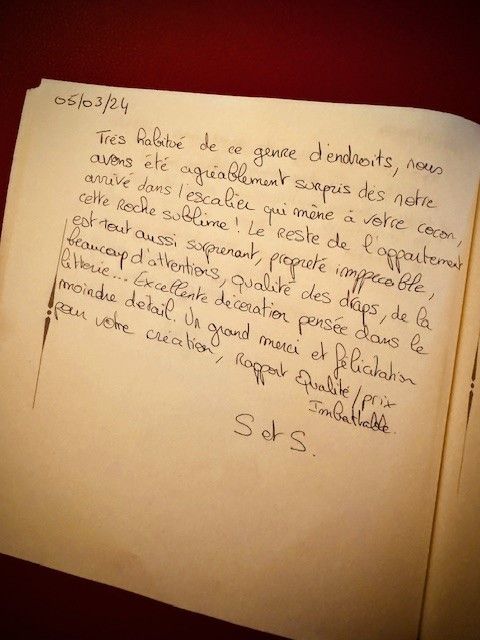 05/03/24
Très habitué de ce genre d'endroits, nous
avons été agréablement surpris dès notre
arrivé dans l'escalier qui mène à votre cocon,
cette Roche sublime! Le reste de l'appartement
est tout aussi surprenant, propreté impeccable,
beaucoup d'attentions, qualité des draps, de la
litterie... Excellente décoration pensée dans le
moindre détail. Un grand merci et félicitation
pour votre création, Rapport Qualité/prix
Imbattable.
S et S.